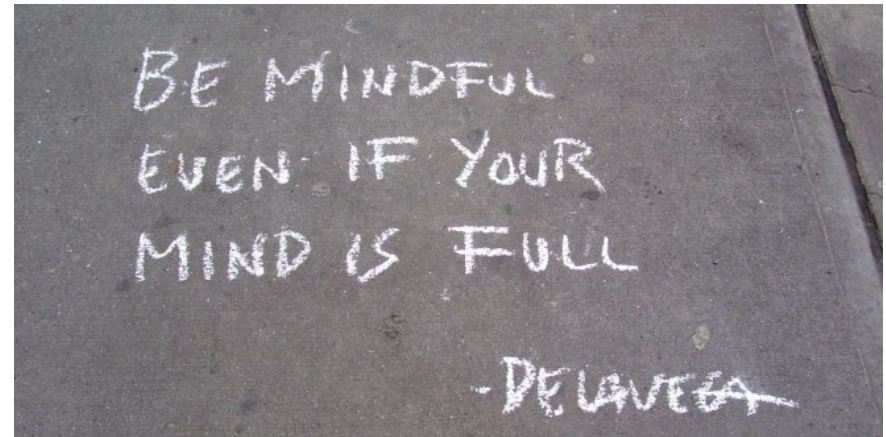 BE MINDFUL
EVEN IF YOUR
MIND IS FULL
-DELAVEGA